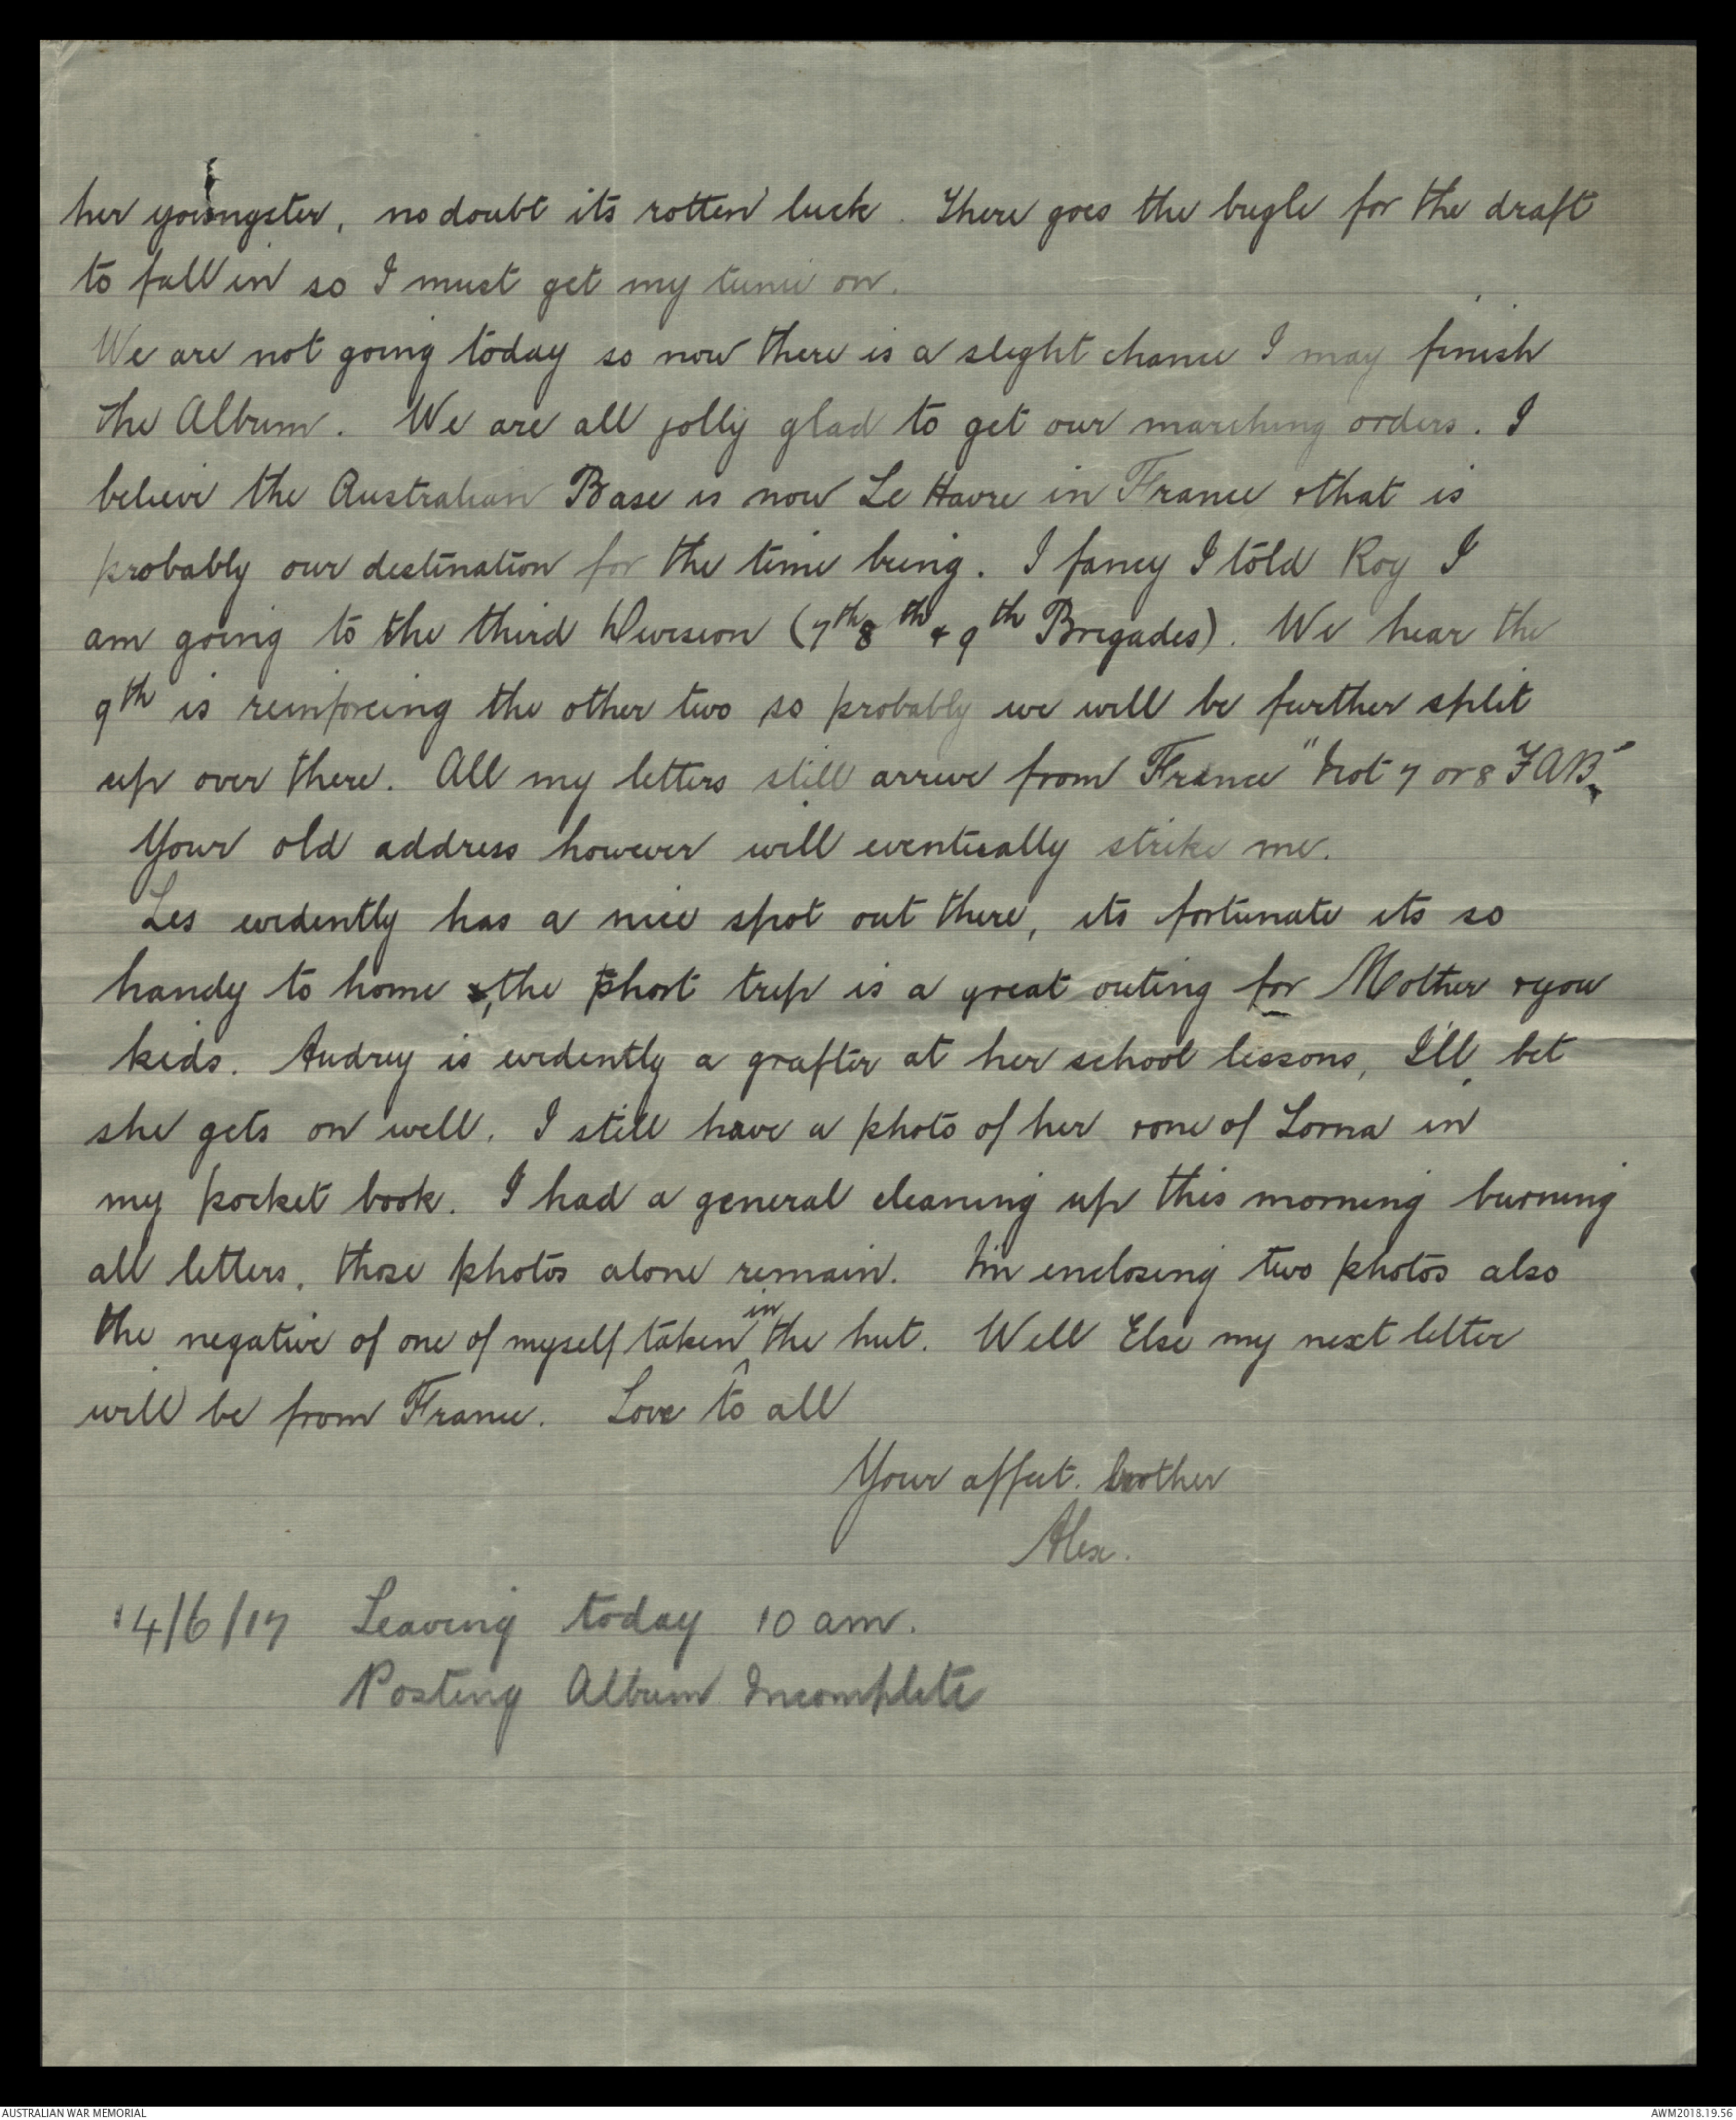 her youngster, no doubt its rotten luck. There goes the bugle for the draft
to fall in so I must get my tunic on.
We are not going today so now there is a slight chance I may finish
the Album. We are all jolly glad to get our marching orders. I
believe the Australian Base is now Le Havre in France & that is
probably our destination for the time being. I fancy I told Roy I
am going to the third Division (7th 8th & 9th Brigades). We hear the
9th is reinforcing the other two so probably we will be further split
up over there. All my letters still arrive from France "Not 7 or 8 FAB"
Your old address however will eventually strike me.
Les evidently has a nice spot out there, its fortunate its so
handy to home, the short trip is a great outing for Mother & you
kids. Audrey is evidently a grafter at her school lessons, I'll bet
she gets on well. I still have a photo of her & one of Lorna in
my pocket book. I had a general cleaning up this morning burning
all letters, those photos alone remain. I'm enclosing two photos also
the negative of one of myself taken in the hut. Well Else my next letter
will be from France. Love to all
Your affect. brother
Alex.
14/6/17 Leaving today 10 am.
Posting Album Incomplete
AUSTRALIAN WAR MEMORIAL
AWM2018.19.56